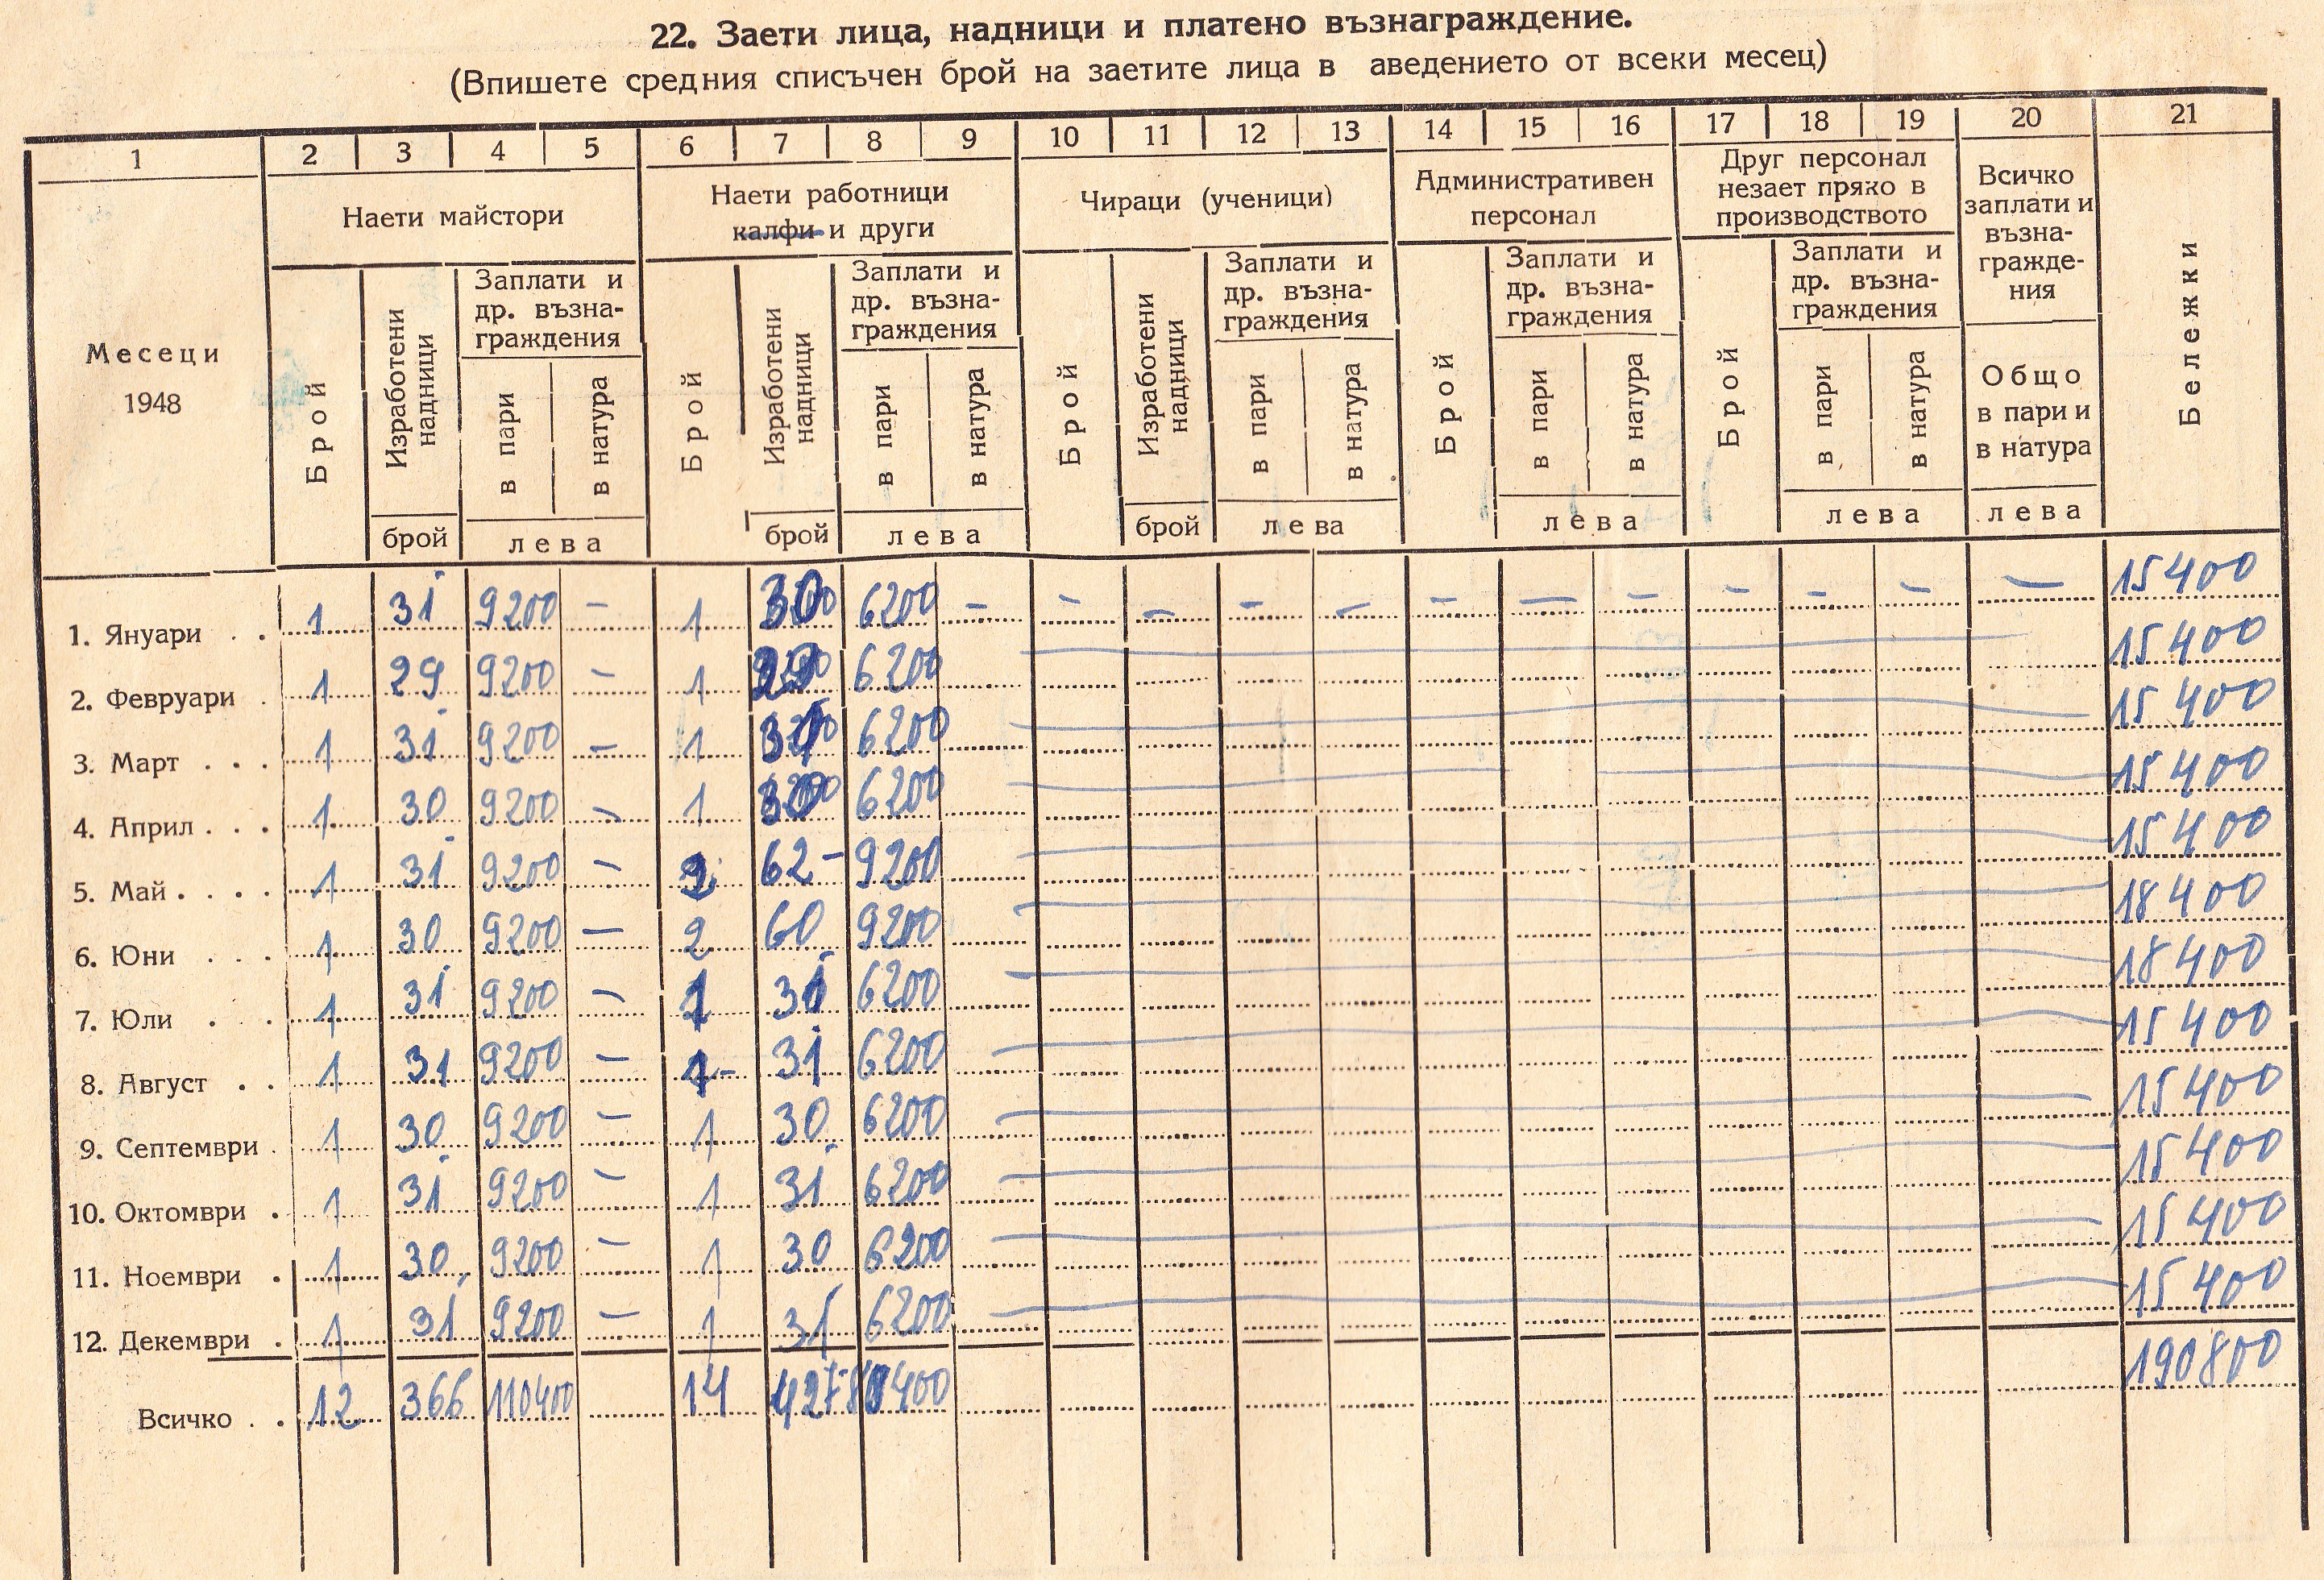 22. Заети лица, надници и платено възнаграждение.
(Впишете средния списъчен брой на заетите лица в аведението от всеки месец)
1 2 3 4 5 6 7 8 9 10 11 12 13 14 15 16 17 18 19 20 21
Месеци
1948
Наети майстори
Брой
Изработени
надници
брой
Заплати и
др. възна-
граждения
в пари
в натура
лева
Наети работници
калфи и други
Брой
Изработени
надници
брой
Заплати и
др. възна-
граждения
в пари
в натура
лева
Чираци (ученици)
Брой
Изработени
надници
брой
Заплати и
др. възна-
граждения
в пари
в натура
лева
Административен
персонал
Брой
Заплати и
др. възна-
граждения
в пари
в натура
лева
Друг персонал
незает пряко в
производството
Брой
Заплати и
др. възна-
граждения
в пари
в натура
лева
Всичко
заплати и
възна-
гражде-
ния
Общо
в пари и
в натура
лева
Бележки
1. Януари . . 1 31 9200 – 1 30 6200 – – – – – – – – – – – – 15400
2. Февруари . 1 29 9200 – 1 29 6200 15400
3. Март . . . 1 31 9200 – 1 31 6200 15400
4. Април . . . 1 30 9200 – 1 30 6200 15400
5. Май . . . . 1 31 9200 – 2 62 – 9200 15400
6. Юни . . . 1 30 9200 – 2 60 9200 18400
7. Юли . . 1 31 9200 – 1 31 6200 18400
8. Август . . 1 31 9200 – 1 – 31 6200 15400
9. Септември . 1 30 9200 – 1 30 6200 15400
10. Октомври . 1 31 9200 – 1 31 6200 15400
11. Ноември . 1 30 9200 – 1 30 6200 15400
12. Декември . 1 31 9200 – 1 31 6200 15400
Всичко . . 12 366 110400 14 427 80400 190800